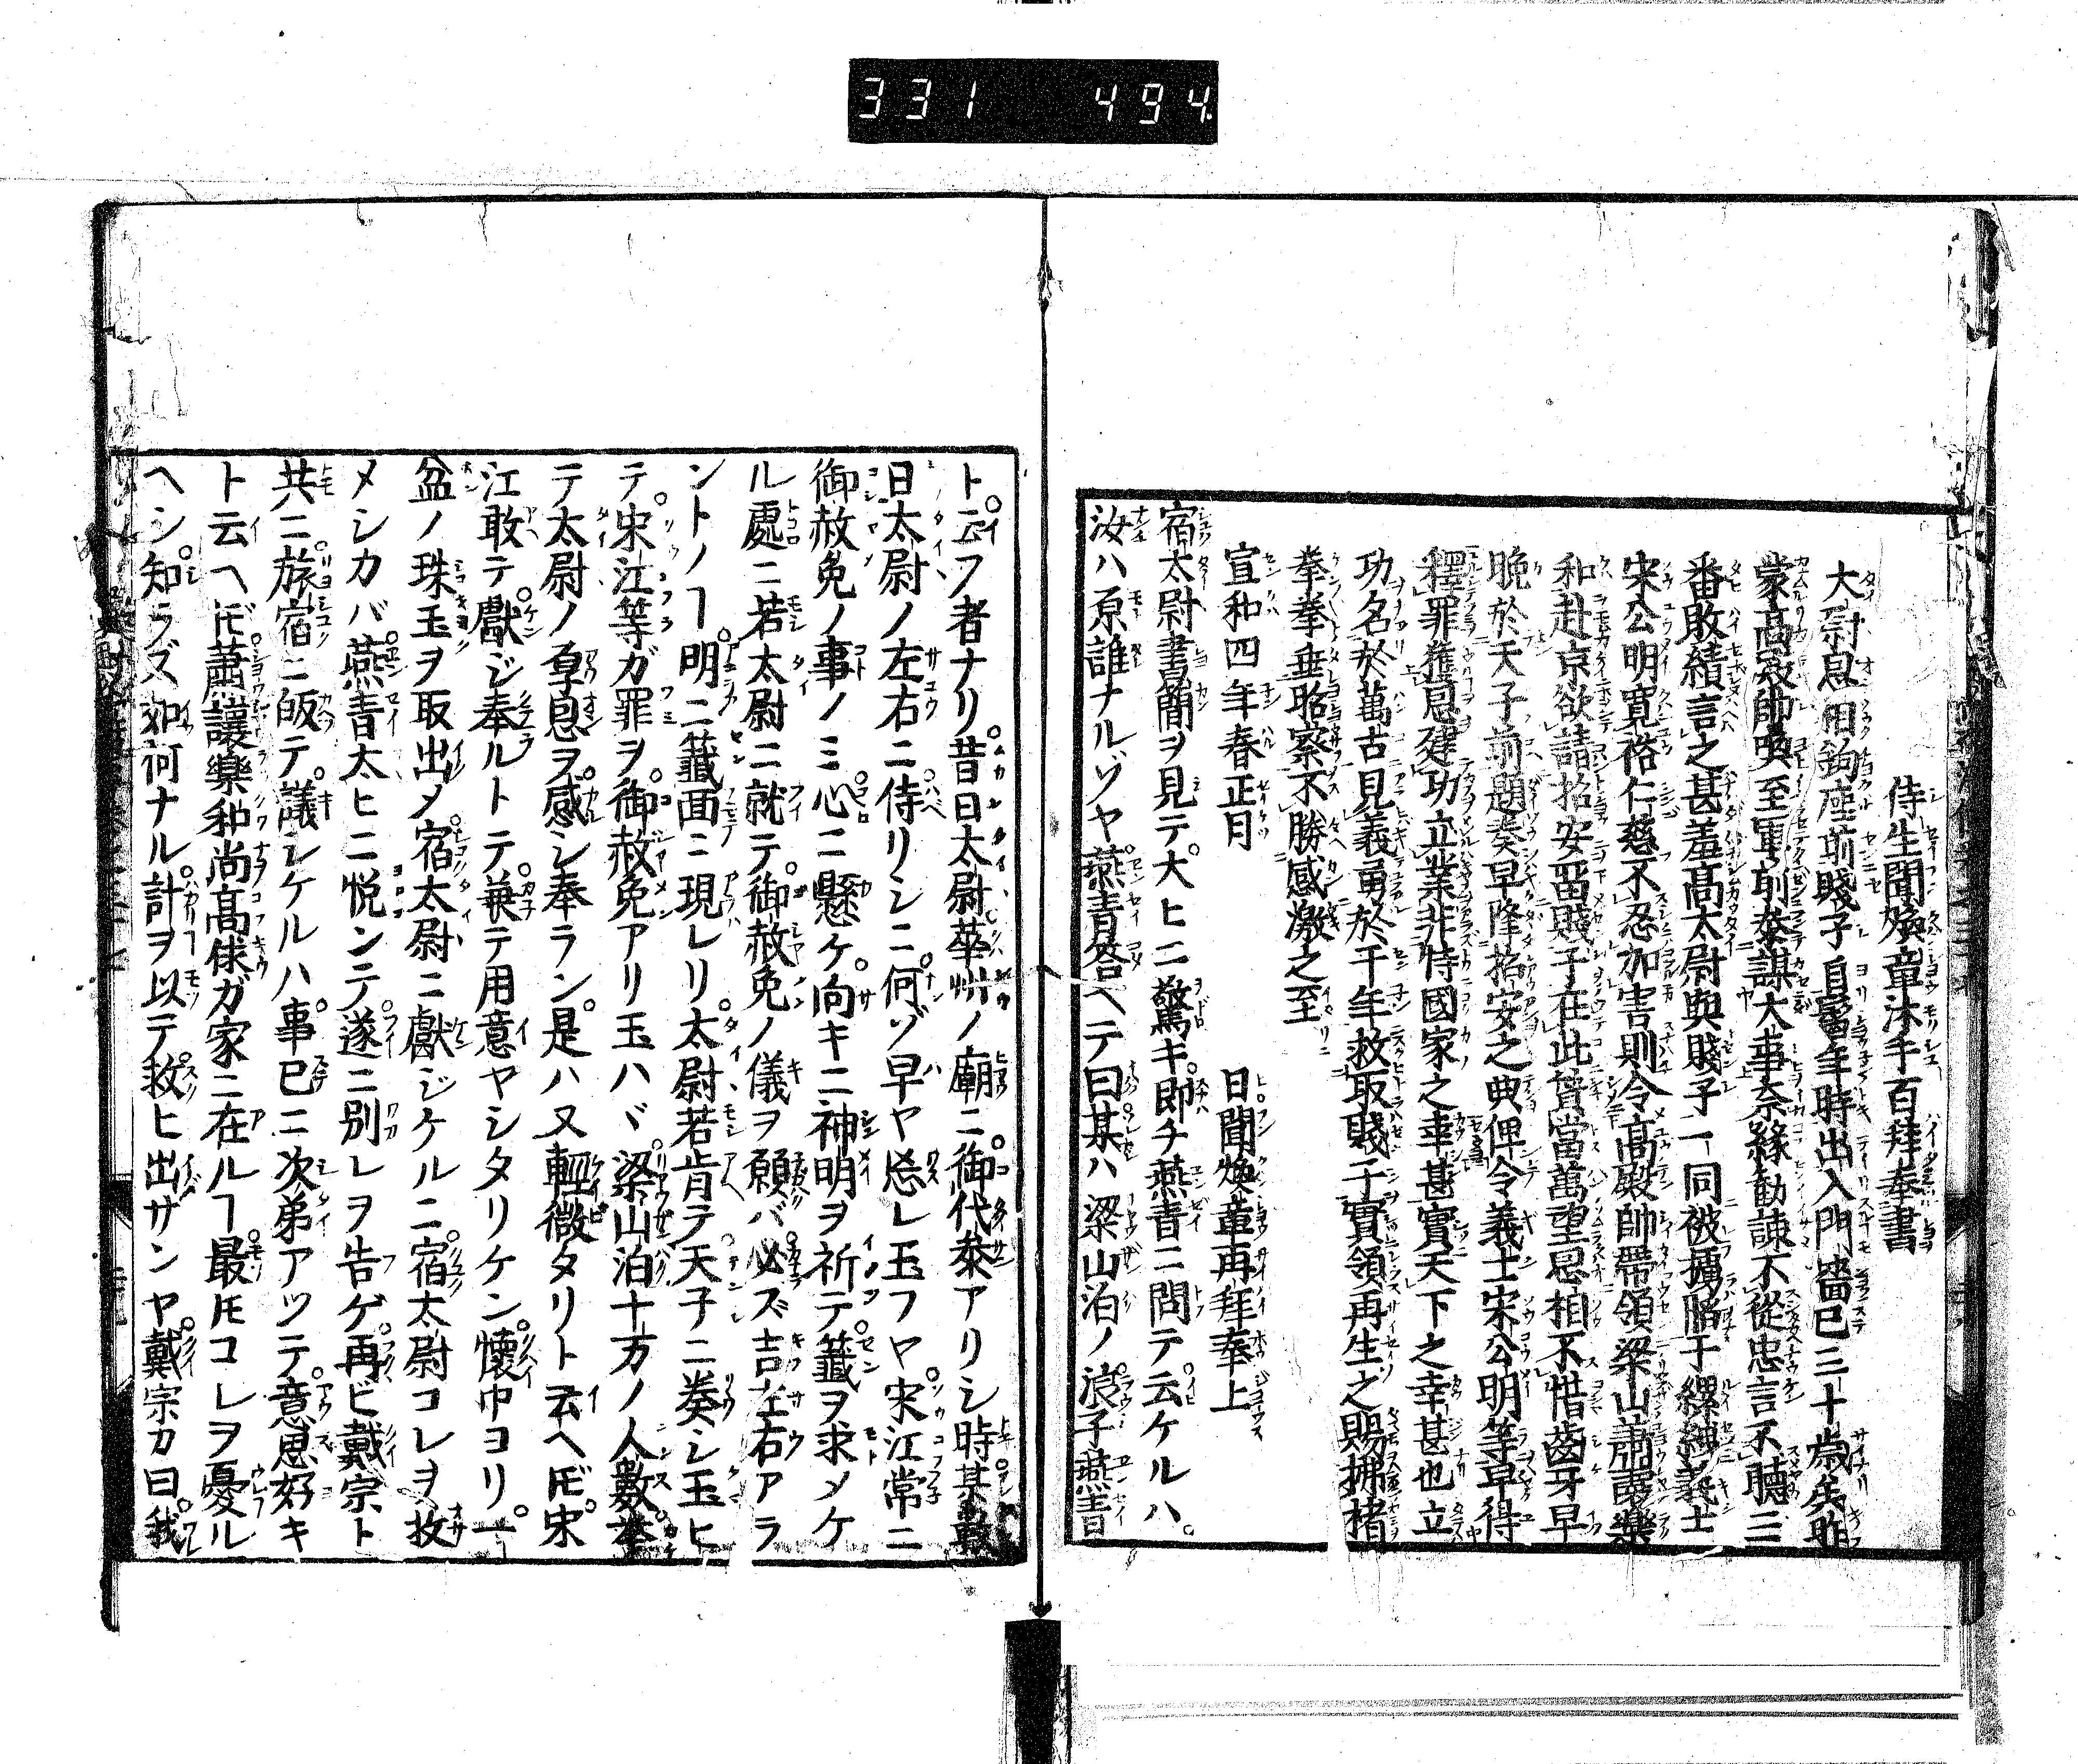 331 494
侍生聞煥章沐手百拜奉書
大尉恩相鈞座前賤子自髫年時出入門墻已三十歲矣昨
蒙高殿帥喚至軍前參謀大事奈緣勸諫不從忠言不聽三
番敗績言之甚羞高太尉與賤子一同被擄陥于縲紲義士
宋公明寛裕仁慈不忍加害則今高殿帥帶領梁山蕭讓樂
和赴京欲請招安畄賤子在此質當萬望恩相不惜齒牙早
晩於天子前題奏早降招安之典俾令義士宋公明等早得
釋罪獲恩建功立業非特國家之幸甚實天下之幸甚也立
功名於萬古見義勇於千年救取賤子實領再生之賜拂楮
拳拳垂昭察不勝感激之至
宣和四年春正月 日聞煥章再拜奉上
宿太尉書簡ヲ見テ大ヒニ驚キ即チ燕青ニ問テ云ケルハ
汝ハ原誰ナルゾヤ燕青答ヘテ曰某ハ梁山泊ノ浪子燕青
ト云フ者ナリ昔日太尉華州ノ廟ニ御代參アリシ時某數
日太尉ノ左右ニ侍リシニ何ゾ早ヤ忘レ玉フヤ宋江常ニ
御赦免ノ事ノミ心ニ懸ケ向キニ神明ヲ祈テ籖ヲ求メケ
ル處ニ若太尉ニ就テ御赦免ノ儀ヲ願バ必ズ吉左右アラ
ントノヿ明ニ籖面ニ現レリ太尉若肯テ天子ニ奏シ玉ヒ
テ宋江等ガ罪ヲ御赦免アリ玉ハヾ梁山泊十万ノ人數挙
テ太尉ノ厚恩ヲ感シ奉ラン是ハ又輕微タリト云ヘ𪜈宋
江敢テ獻ジ奉ルトテ兼テ用意ヤシタリケン懷中ヨリ一
盆ノ珠玉ヲ取出メ宿太尉ニ獻ジケルニ宿太尉コレヲ收
メシカバ燕青太ヒニ悦ンテ遂ニ別レヲ告ゲ再ビ戴宗ト
共ニ旅宿ニ皈テ議シケルハ事已ニ次弟アツテ意思好キ
ト云ヘ𪜈蕭讓樂和尚高俅ガ家ニ在ルヿ最𪜈コレヲ憂ル
ヘシ知ラズ如何ナル計ヲ以テ救ヒ出サンヤ戴宗カ曰我